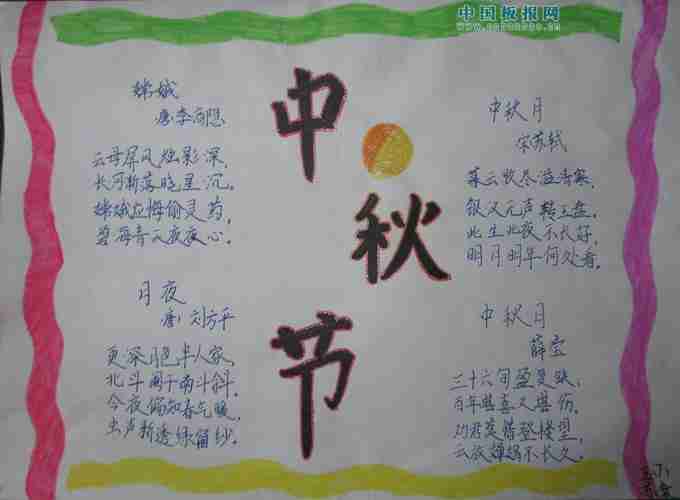 中国板报网
中秋节
嫦娥
唐李商隐
云母屏风烛影深,
长河渐落晓星沉。
嫦娥应悔偷灵药,
碧海青天夜夜心。
月夜
唐 刘方平
更深月色半人家,
北斗阑干南斗斜。
今夜偏知春气暖,
虫声新透绿窗纱。
中秋月
宋苏轼
暮云收尽溢清寒,
银汉无声转玉盘。
此生此夜不长好,
明月明年何处看。
中秋月
薛宝
三十六旬盈复缺,
百年堪喜又堪伤。
劝君莫惜登楼望,
云放婵娟不长久。